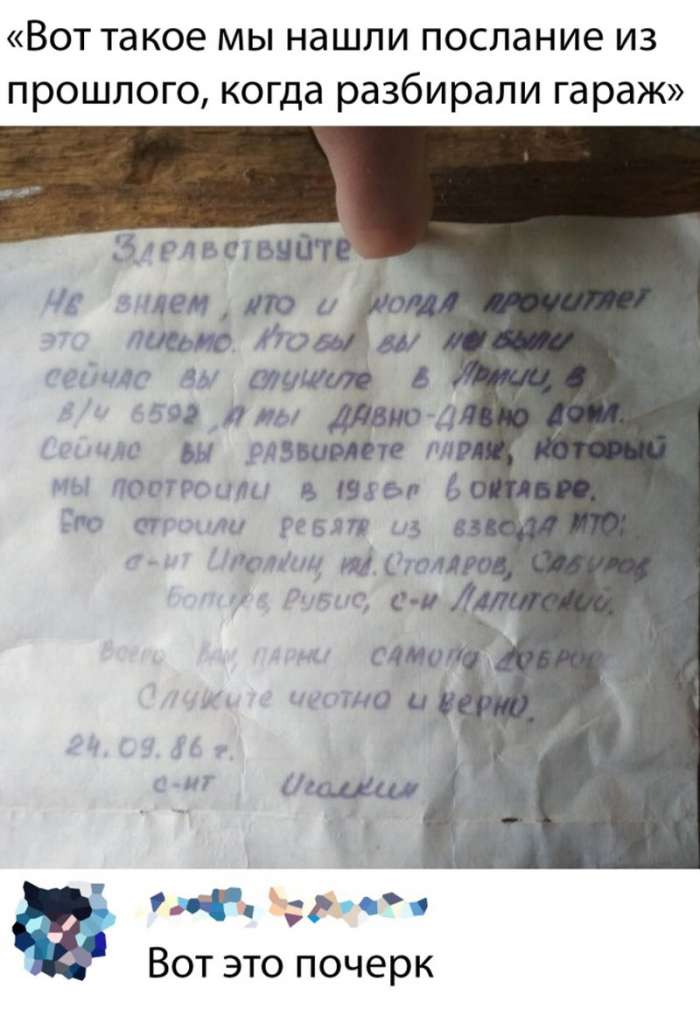 «Вот такое мы нашли послание из
прошлого, когда разбирали гараж»
Здравствуйте
Не знаем, кто и когда прочитает
это письмо. Кто бы вы не были
сейчас вы служите в Армии, в
в/ч 6592, а мы давно-давно дома.
Сейчас вы разбираете гараж, который
мы построили в 1986г в октябре.
Его строили ребята из взвода МТО:
с-нт Иголкин, Столаров, Сабуров,
Рубис, с-н Лапитский.
Всего Вам, парни самого доброго
Служите честно и верно.
24.09.86 г.
с-нт Иголкин
Вот это почерк